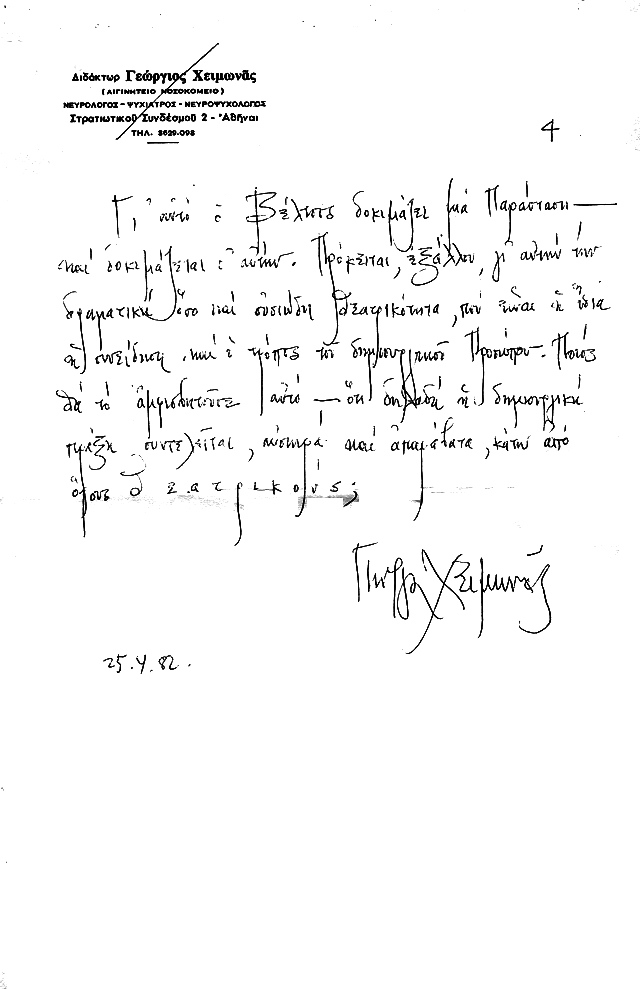 Διδάκτωρ Γεώργιος Χειμωνᾶς
(ΑΙΓΙΝΗΤΕΙΟ ΝΟΣΟΚΟΜΕΙΟ)
ΝΕΥΡΟΛΟΓΟΣ – ΨΥΧΙΑΤΡΟΣ – ΝΕΥΡΟΨΥΧΟΛΟΓΟΣ
Στρατιωτικοῦ Συνδέσμου 2 – Ἀθῆναι
ΤΗΛ. 3629.098
4
Γι' αὐτὸ ὁ Βέλτσος δοκιμάζει μιὰ Παράσταση —
καὶ δοκιμάζεται σ' αὐτήν. Πρόκειται, ἐξάλλου, γι' αὐτὴν τὴν
δραματικὴ ὅσο καὶ οὐσιώδη θεατρικότητα, ποὺ εἶναι ἡ ἴδια
ἡ συνείδηση καὶ ὁ τρόπος τοῦ δημιουργικοῦ Προσώπου. Ποιός
θὰ τὸ ἀμφισβητοῦσε αὐτό — ὅτι δηλαδὴ ἡ δημιουργικὴ
πράξη συντελεῖται, αὐστηρὰ καὶ ἀπαράβατα, κάτω ἀπὸ
ὅρους θεατρικούς;
Γιῶργος Χειμωνᾶς
25.4.82.